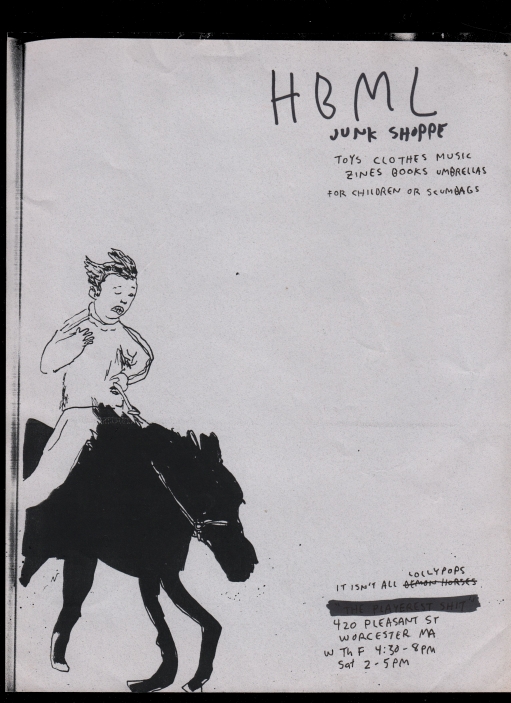 HBML
JUNK SHOPPE
TOYS CLOTHES MUSIC
ZINES BOOKS UMBRELLAS
FOR CHILDREN OR SCUMBAGS
LOLLYPOPS
IT ISN'T ALL DEMON HORSES
"THE PLAYEREST SHIT"
420 PLEASANT ST
WORCESTER MA
W Th F 4:30-8PM
Sat 2-5PM